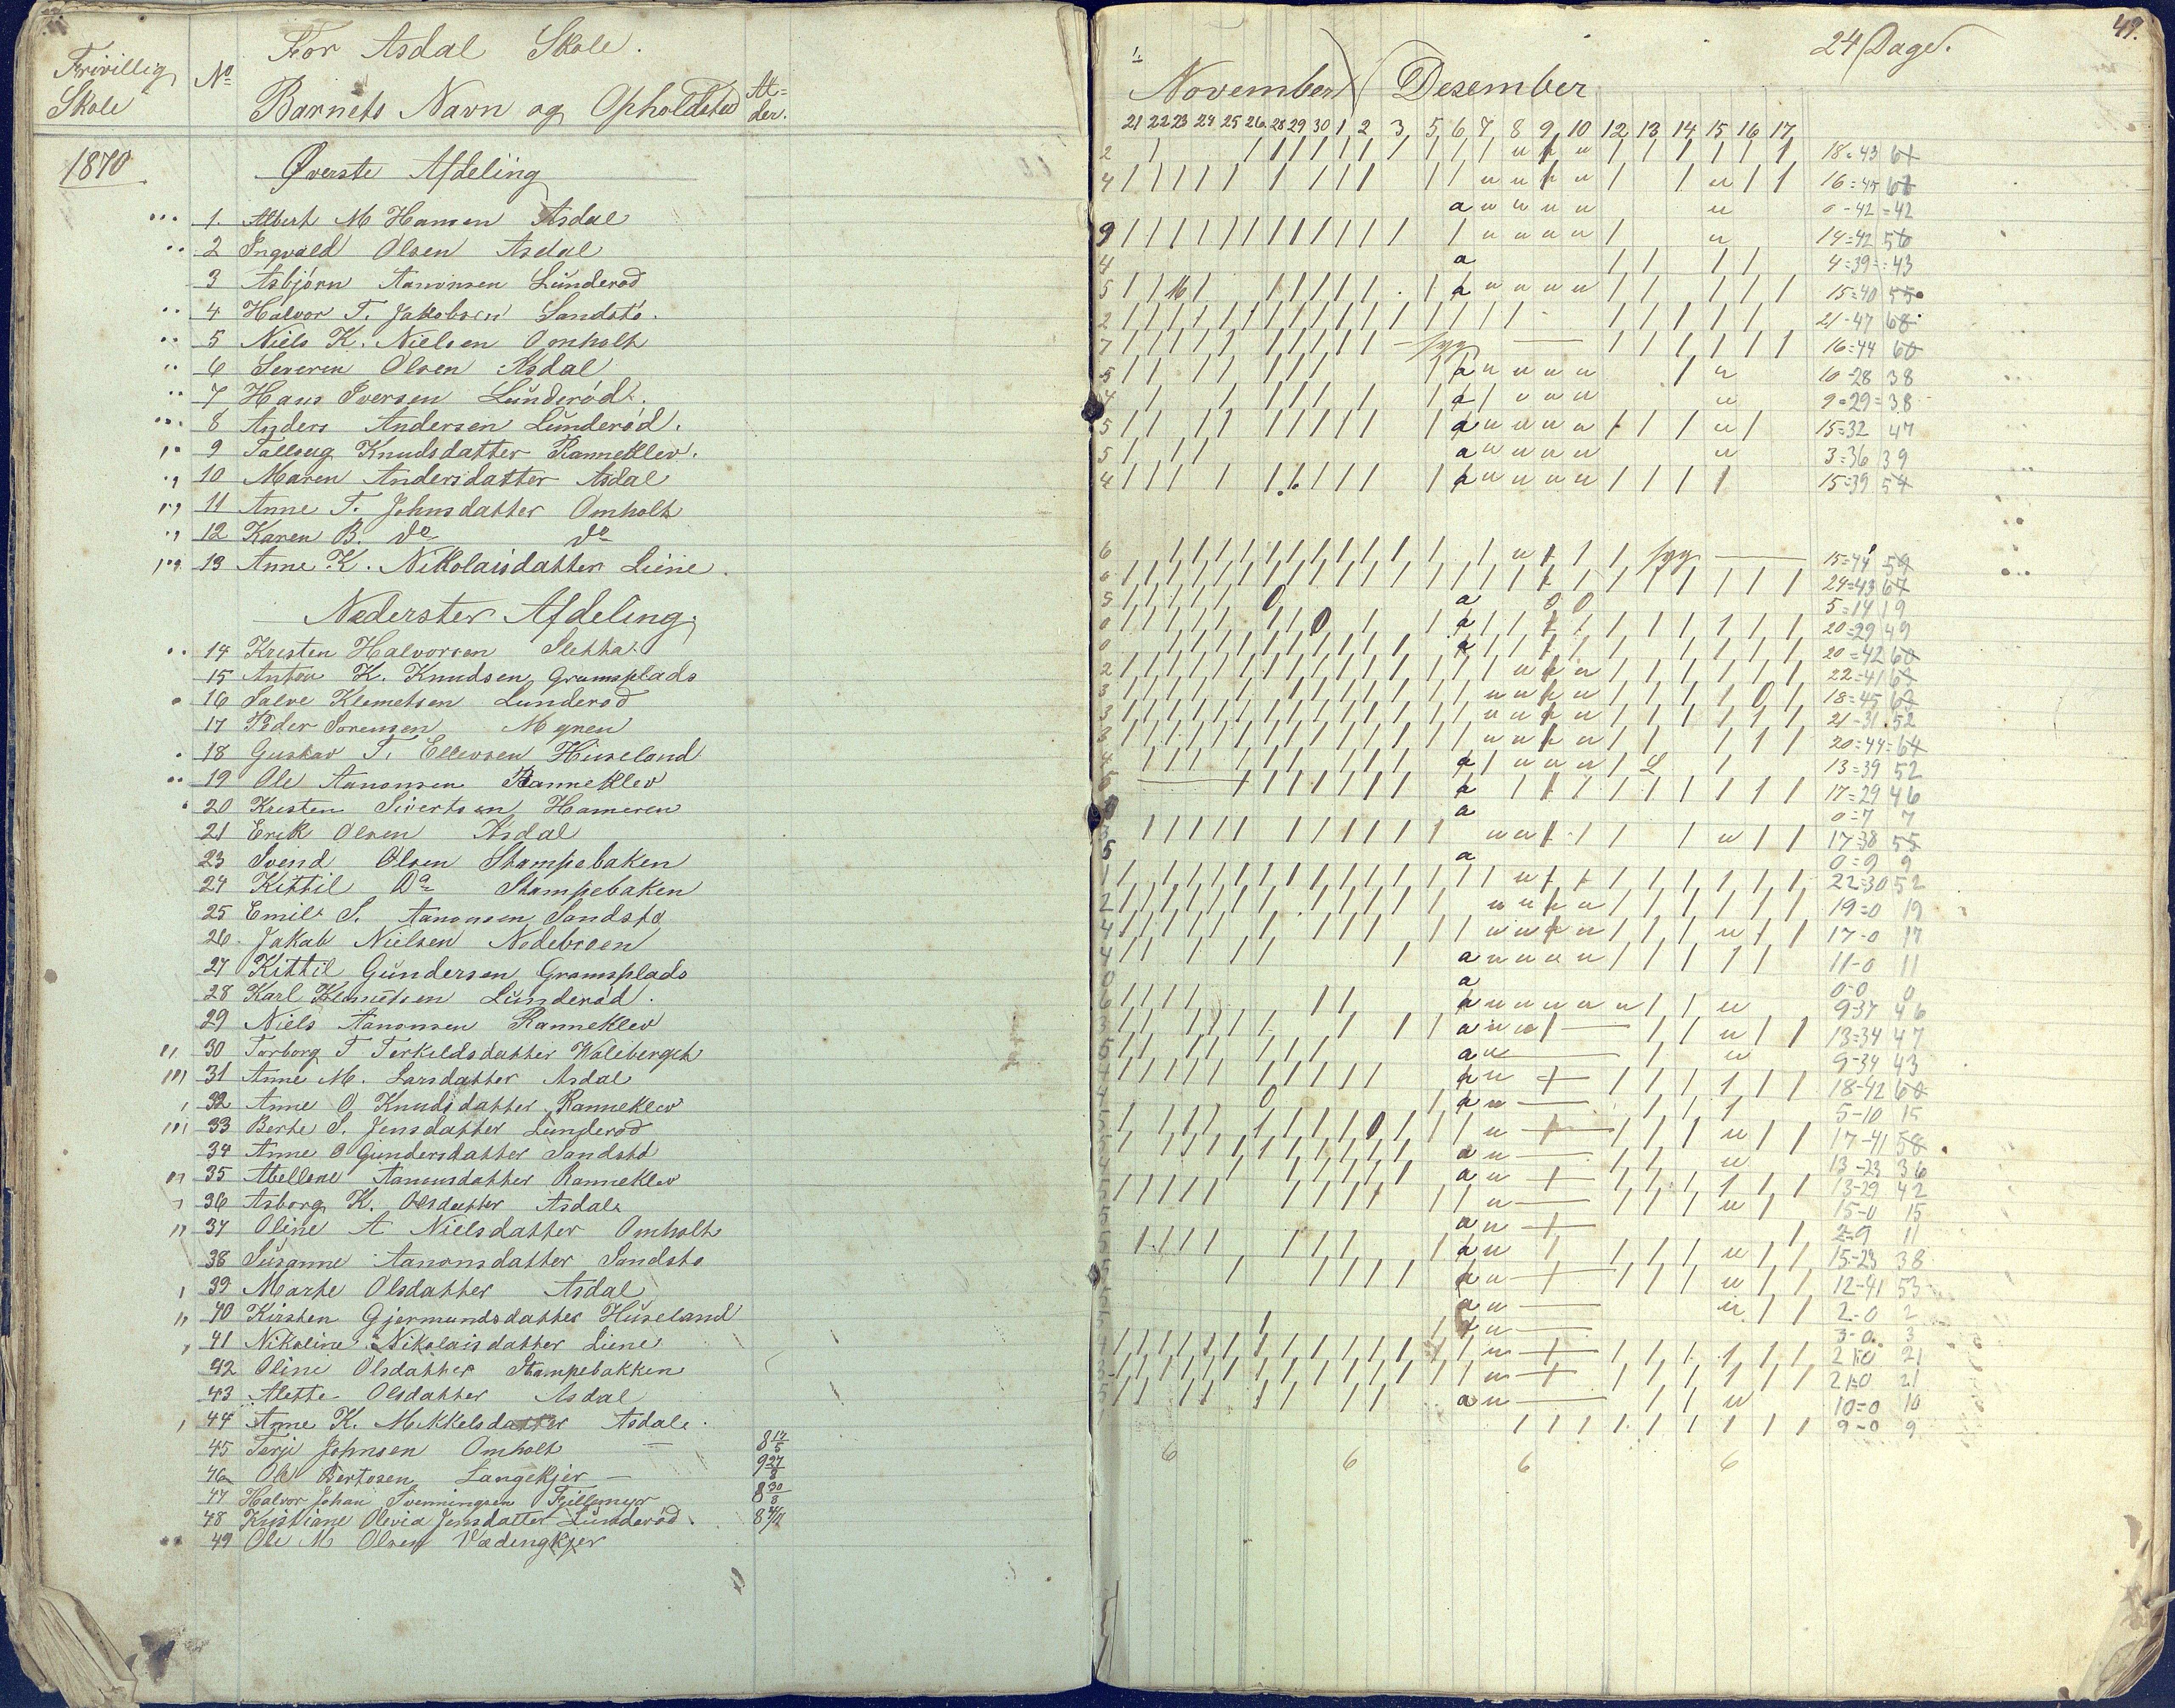 Frivillig Skole
No
For Asdal Skole.
Barnets Navn og Opholdsted
Al= der.
1870
Øverste Afdeling
1. Albert M Hansen Asdal
2 Ingvald Olsen Asdal
3 Asbjørn Aanonsen Lunderød
4 Halvor T. Jakobsen Sandstø.
5 Niels K. Nielsen Omholt
6 Severin Olsen Asdal
7 Hans Iversen Lunderød.
8 Anders Andersen Lunderød.
9 Tallaug Knudsdatter Ranneklev.
10 Maren Andersdatter Asdal
11 Anne T. Johnsdatter Omholt
12 Karen B. do do
13 Anne K. Nikolaisdatter Liene
Nederster Afdeling.
14 Kristen Halvorsen Sletta
15 Anton K. Knudsen Gramsplads
16 Salve Klemetsen Lunderød
17 Peder Sørensen Myren
18 Gustav T. Ellevsen Huseland
19 Ole Aanonsen Ranneklev
20 Kristen Sivertsen Hameren
21 Erik Olsen Asdal
23 Svend Olsen Stampebaken
24 Kittil Do Stampebaken
25 Emil S. Aanonsen Sandstø
26. Jakob Nielsen Nedebroen
27 Kittil Gundersen Gramsplads
28 Karl Klemetsen Lunderød.
29 Niels Aanonsen Ranneklev
30 Torborg T Terkildsdatter
31 Anne M. Larsdatter Asdal
32 Anne O Knudsdatter Ranneklev
33 Berte S. Jensdatter Lunderød
34 Anne O Gundersdatter Sandstø
35 Abellone Aanonsdatter Ranneklev
36 Asborg K. Olsdatter Asdal
37 Oline A Nielsdatter Omholt
38 Susanne Aanonsdatter Sandstø
39 Marte Olsdatter Asdal
40 Kirsten Gjermundsdatter Huseland
41 Nikoline Nikolaisdatter Liene
42 Oline Olsdatter Stampebakken
43 Alette Olsdatter Asdal
44 Anne K. Mikkelsdatter Asdal.
45 Terje Johnsen Omholt 8 17/5
46 Ole Bertosen Langekjer 9 27/8
47 Halvor Johan Svenningsen Fjellmyr 8 30/8
48 Kristiane Olevia Jensdatter Lunderød.
49 Ole M Olsen Vædengkjer
49.
24 Dage.
November Desember
21 22 23 24 25 26 28 29 30 1 2 3 5 6 7 8 9 10 12 13 14 15 16 17
2 18=43 61
4 16=45 61
0-42=42
9 14=42 56
4 4=39=43
5 15=40 55
2 21-47 68
7 syg 16=44 60
5 10-28 38
4 9=29=38
5 15=32 47
5 3=36 39
4 15=39 54
6 syg 15=44 59
6 24=43 67
5 5=14 19
0 20=29 49
0 20=42 60
2 22=41 63
3 18=45 63
3 21-31.52
3 20=44=64
4 13=39 52
17=29 46
0=7 7
3 17=38 55
5 0=9 9
1 22=30 52
2 19=0 19
4 17-0 17
4 11-0 11
0 0-0 0
6 9-37 46
13=34 47
9-34 43
18-42 60
5-10 15
17-41 58
13-23 36
13-29 42
15-0 15
2=9 11
15-23 38
12-41 53
2-0 2
3-0. 3
21-0 21
21-0 21
10=0 10
9-0 9
6 6 6 6